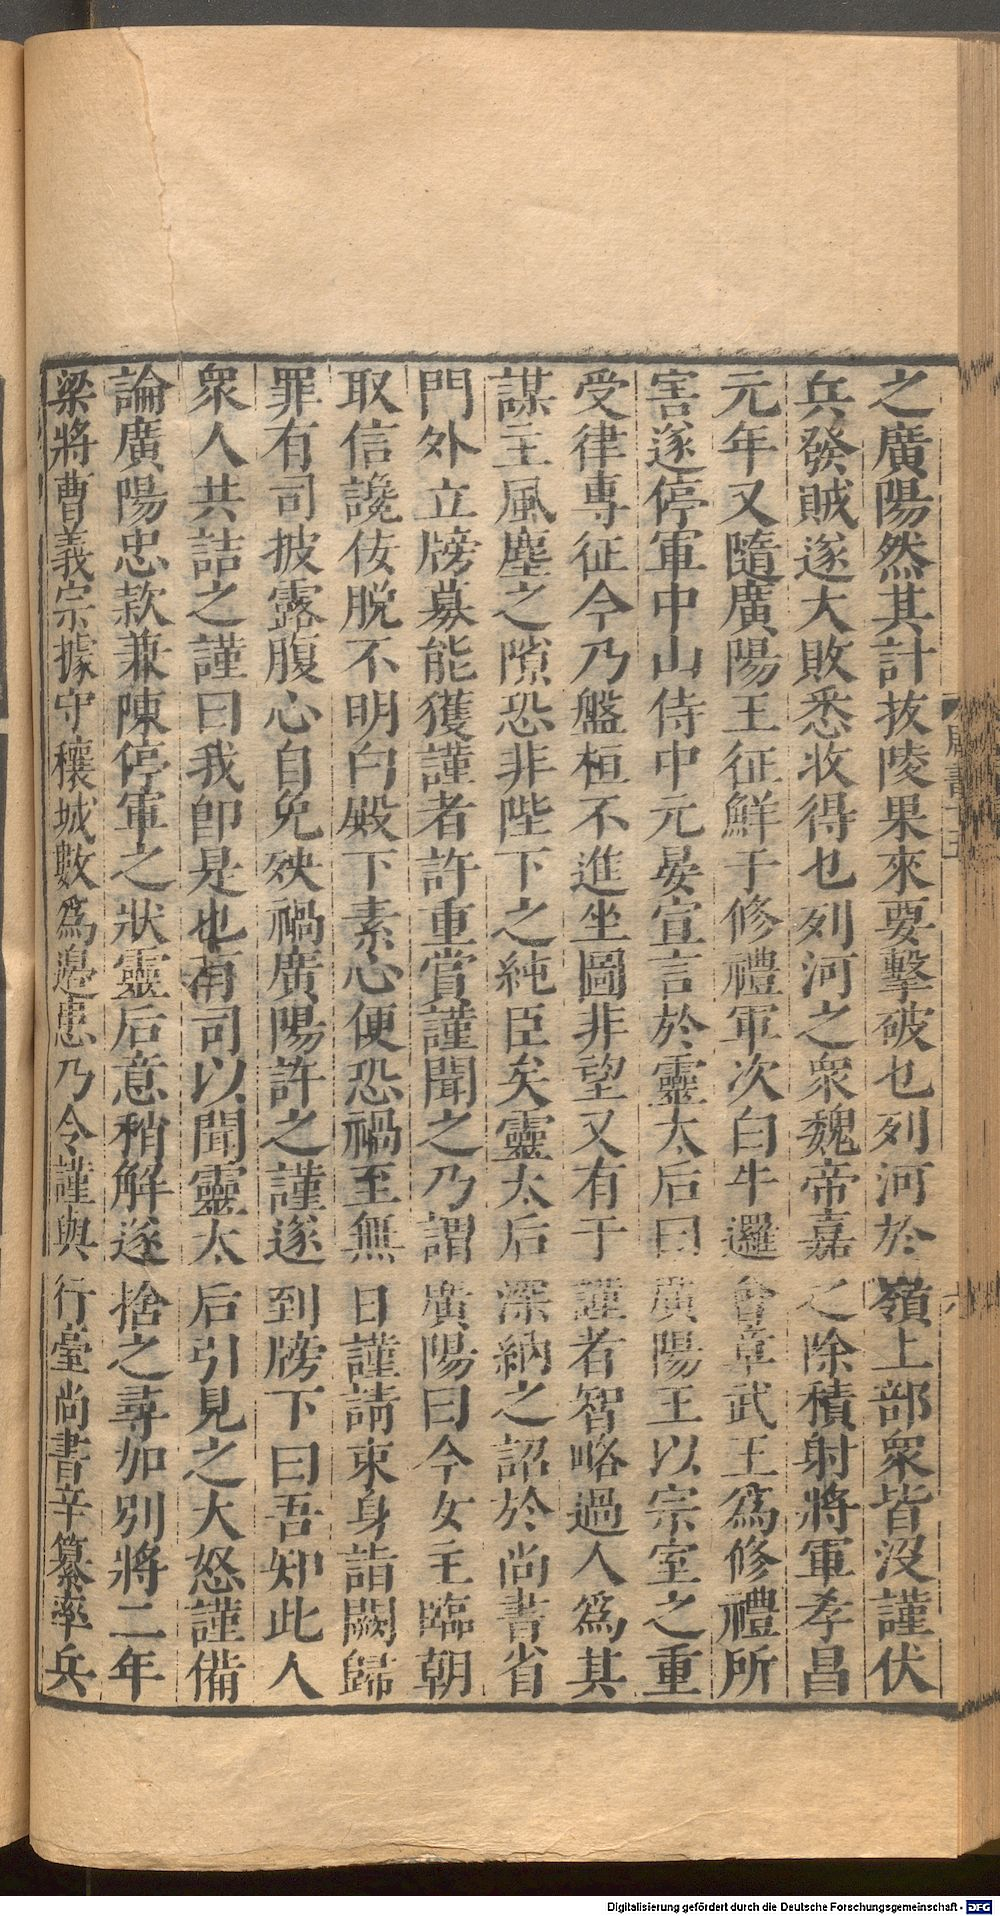 之廣陽然其計拔陵果來要擊破乜列河於嶺上部衆皆沒謹伏
兵發賊遂大敗悉收得乜列河之衆魏帝嘉之除積射將軍孝昌
元年又隨廣陽王征鮮于修禮軍次白牛邏會章武王爲修禮所
害遂停軍中山侍中元晏宣言於靈太后曰廣陽王以宗室之重
受律專征今乃盤桓不進坐圖非望又有于謹者智略過人爲其
謀主風塵之隙恐非陛下之純臣矣靈太后深納之詔於尚書省
門外立牓募能獲謹者許重賞謹聞之乃謂廣陽曰今女主臨朝
取信讒佞脫不明白殿下素心便恐禍至無日謹請束身詣闕歸
罪有司披露腹心自免殃禍廣陽許之謹遂到牓下曰吾知此人
衆人共詰之謹曰我卽是也有司以聞靈太后引見之大怒謹備
論廣陽忠款兼陳停軍之狀靈后意稍解遂捨之尋加別將二年
梁將曹義宗據守穰城數爲邊患乃令謹與行臺尚書辛纂率兵
Digitalisierung gefördert durch die Deutsche Forschungsgemeinschaft - DFG